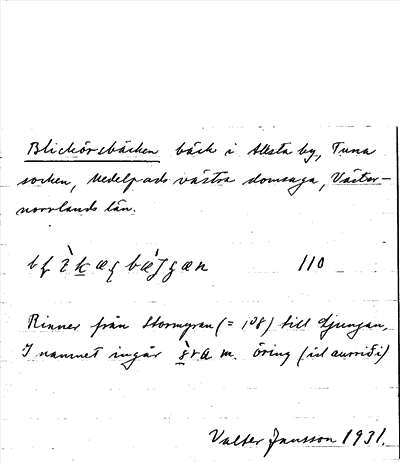 Blickörsbäcken bäck i Allsta by, Tuna
socken, Medelpads västra domsaga, Väster-
norrlands län.
110
Rinner från Stormyran (= 108) till Ljungan.
I namnet ingår m. öring (isl aurriði)
Valter Jansson 1931.